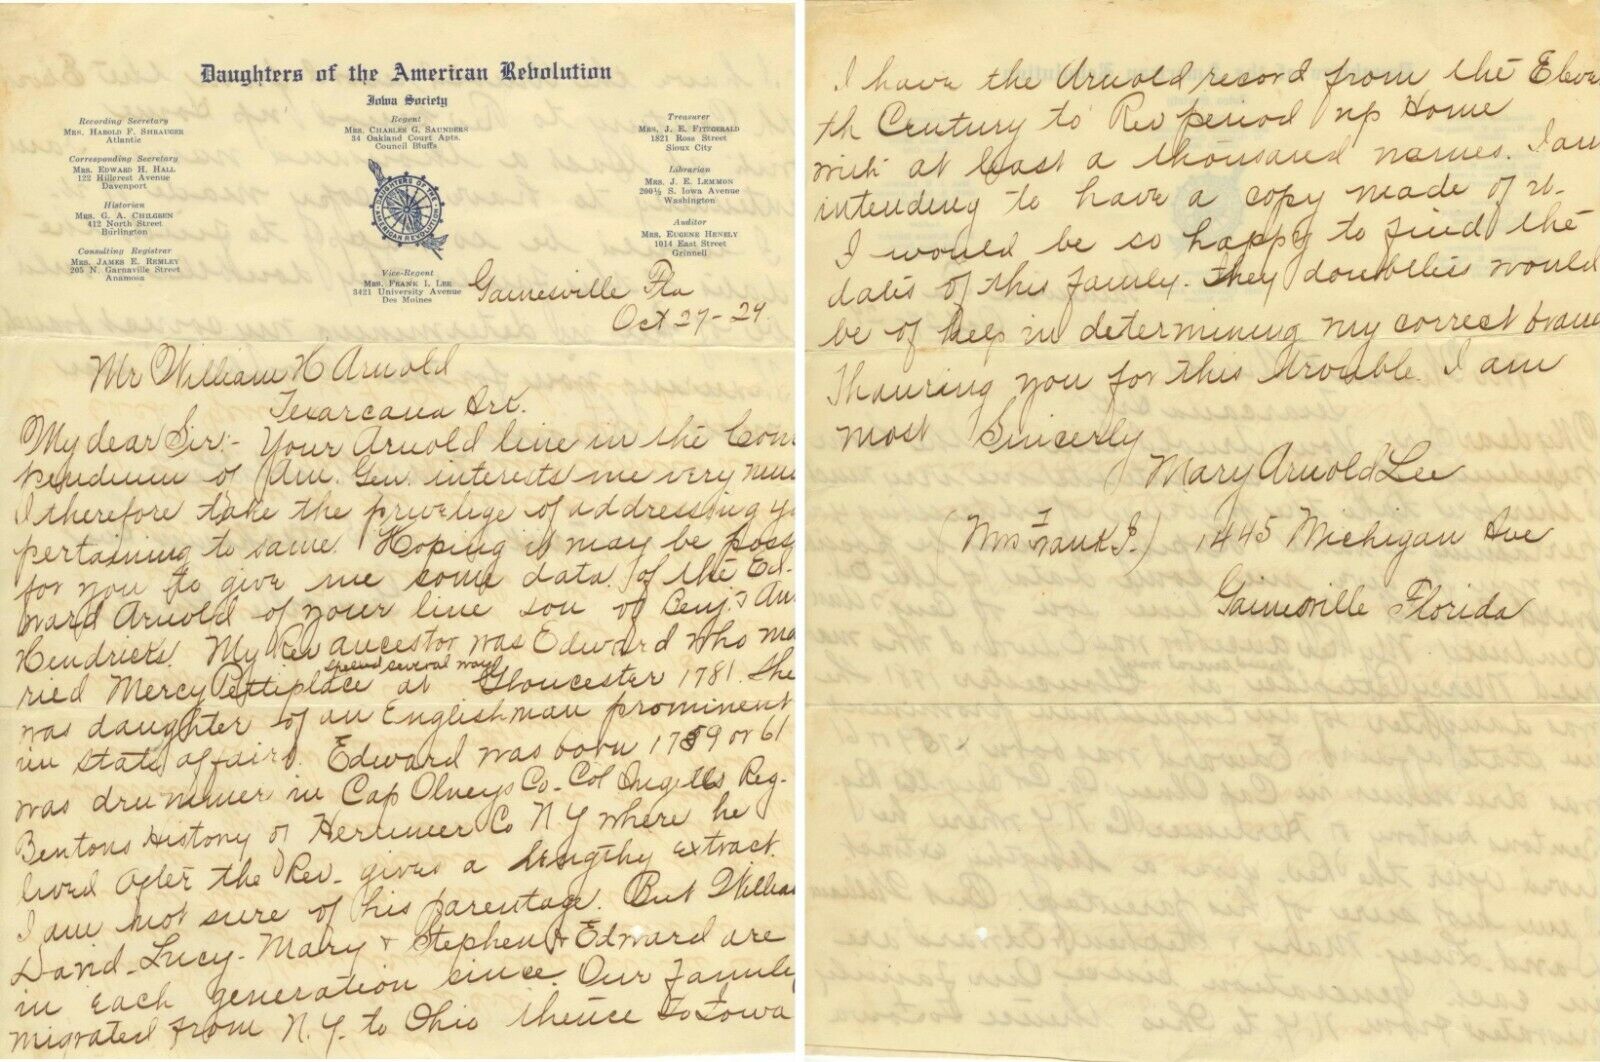 Daughters of the American Revolution
Iowa Society
Recording Secretary
Mrs. Harold F. Shrauger
Atlantic
Corresponding Secretary
Mrs. Edward H. Hall
122 Hillcrest Avenue
Davenport
Historian
Mrs. G. A. Chilgren
412 North Street
Burlington
Consulting Registrar
Mrs. James E. Remley
205 N. Garnaville Street
Anamosa
Regent
Mrs. Charles G. Saunders
34 Oakland Court Apts.
Council Bluffs
DAUGHTERS OF THE AMERICAN REVOLUTION
Vice-Regent
Mrs. Frank I. Lee
3421 University Avenue
Des Moines
Treasurer
Mrs. J. E. Fitzgerald
1821 Ross Street
Sioux City
Librarian
Mrs. J. E. Lemmon
200½ S. Iowa Avenue
Washington
Auditor
Mrs. Eugene Henely
1014 East Street
Grinnell
Gainesville Fla
Oct 27-24.
Mr William H Arnold
Texarcana Ark.
My dear Sir:- Your Arnold line in the Com
pendium of Am. Gen. interests me very muc
I therefore take the privelige of addressing y
pertaining to same. Hoping it may be poss
for you to give me some data of the Ed-
ward Arnold of your line son of Benj. & An
Hendricks. My Rev ancestor was Edward who ma
spelled several ways
ried Mercy Petteplace at Gloucester 1781. She
was daughter of an Englishman prominent
in state affairs. Edward was born 1759 or 61
was drummer in Cap Olneys Co. Col Angells Reg-
Bentons History of Herkimer Co N Y where he
lived after the Rev- gives a lengthy extract.
I am not sure of his parentage. But Willia
David-Lucy-Mary & Stephen & Edward are
in each generation since. Our family
migrated from N.Y. to Ohio thence to Iowa
I have the Arnold record from the Eleve
th Century to Rev period up Home
with at least a thousand names. I am
intending to have a copy made of it-
I would be so happy to find the
dates of this family. They doubtless would
be of help in determining my correct bran
Thanking you for this trouble. I am
most Sincerly
Mary Arnold Lee
(Mrs Frank I.) 1445 Michigan Ave
Gainesville Florida